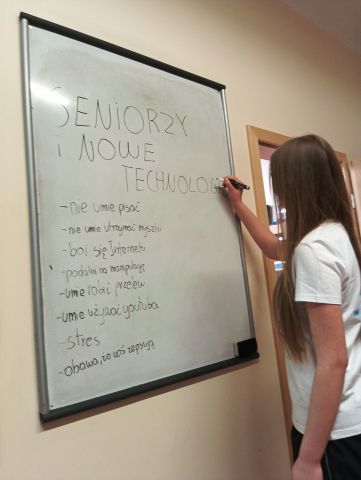 SENIORZY
i NOWE
TECHNOLOG
- nie umie pisać
- nie umie utrzymać myszki
- boi się Internetu
- podatni na manipulację
- umie robić przelew
- umie używać youtuba
- stres
- obawa, że coś zepsują